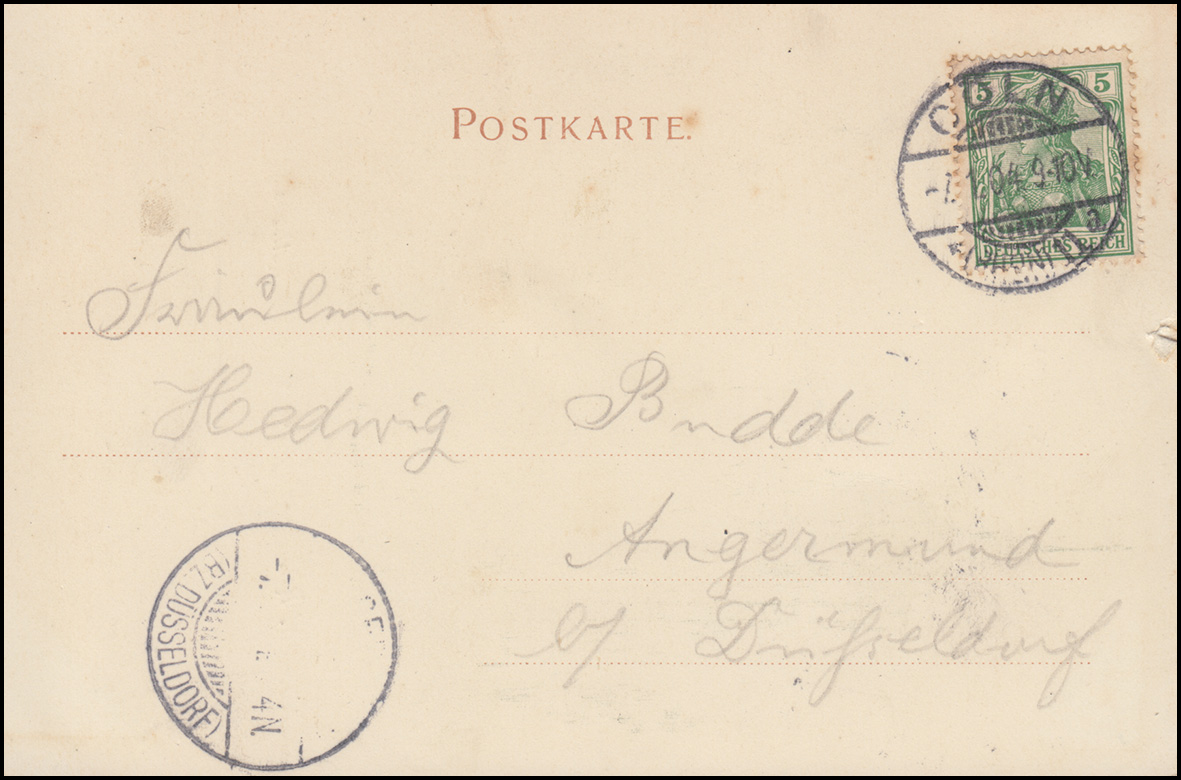 POSTKARTE.
5 5
DEUTSCHES REICH
CÖLN
04. 9-10V.
Fräulein
Hedwig Budde
Angermund
b/ Düsseldorf
(BZ. DÜSSELDORF)
4N.